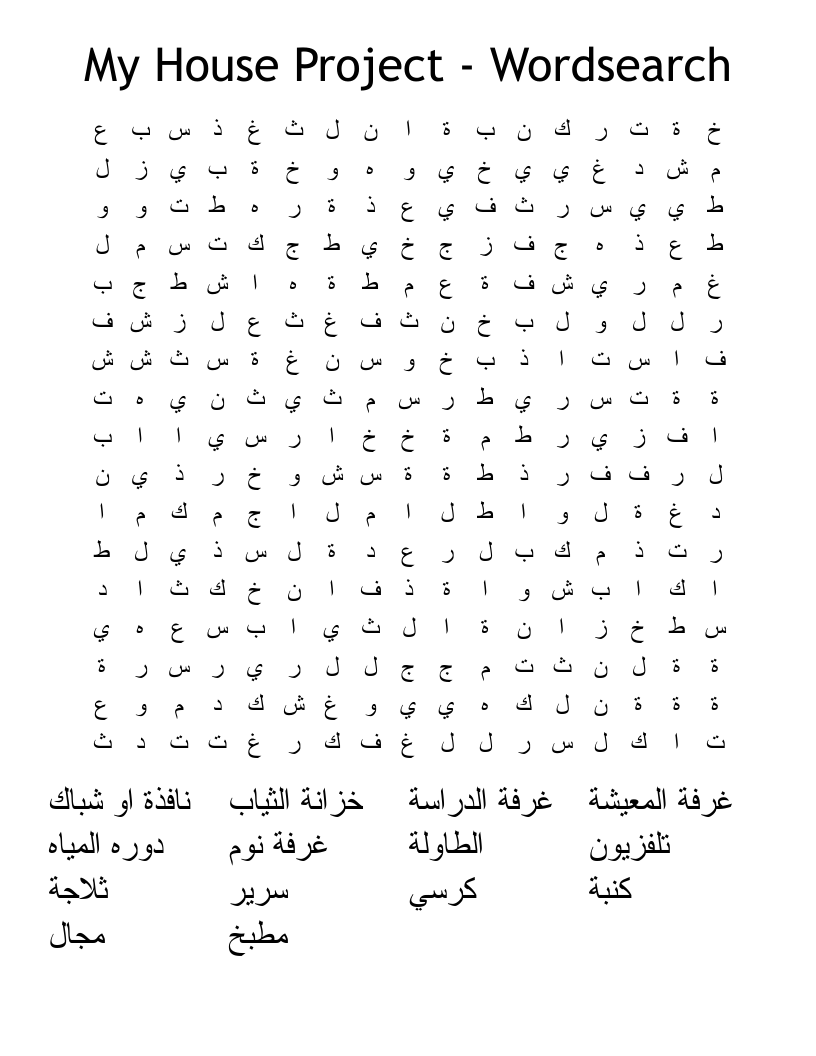 My House Project - Wordsearch
خ ة ت ر ك ن ب ة ا ن ل ث غ ذ س ب ع
م ش د غ ي ي خ ي و ه و خ ة ب ي ز ل
ط ي ي س ر ث ف ي ع ذ ة ر ه ط ت و و
ط ع ذ ه ج ف ز ج خ ي ط ج ك ت س م ل
غ م ر ي ش ف ة ع م ط ة ه ا ش ط ج ب
ر ل ل و ل ب خ ن ث ف غ ث ع ل ز ش ف
ف ا س ت ا ذ ب خ و س ن غ ة س ث ش ش
ة ة ت س ر ي ط ر س م ث ي ث ن ي ه ت
ا ف ز ي ر ط م ة خ خ ا ر س ي ا ا ب
ل ر ف ف ر ذ ط ة ة س ش و خ ر ذ ي ن
د غ ة ل و ا ط ل ا م ل ا ج م ك م ا
ر ت ذ م ك ب ل ر ع د ة ل س ذ ي ل ط
ا ك ا ب ش و ا ة ذ ف ا ن خ ك ث ا د
س ط خ ز ا ن ة ا ل ث ي ا ب س ع ه ي
ة ة ل ن ث ت م ج ج ل ل ر ي ر س ر ة
ة ة ة ن ل ك ه ي ي و غ ش ك د م و ع
ت ا ك ل س ر ل ل غ ف ك ر غ ت ت د ث
غرفة المعيشة غرفة الدراسة خزانة الثياب نافذة او شباك
تلفزيون الطاولة غرفة نوم دوره المياه
كنبة كرسي سرير ثلاجة
مطبخ مجال